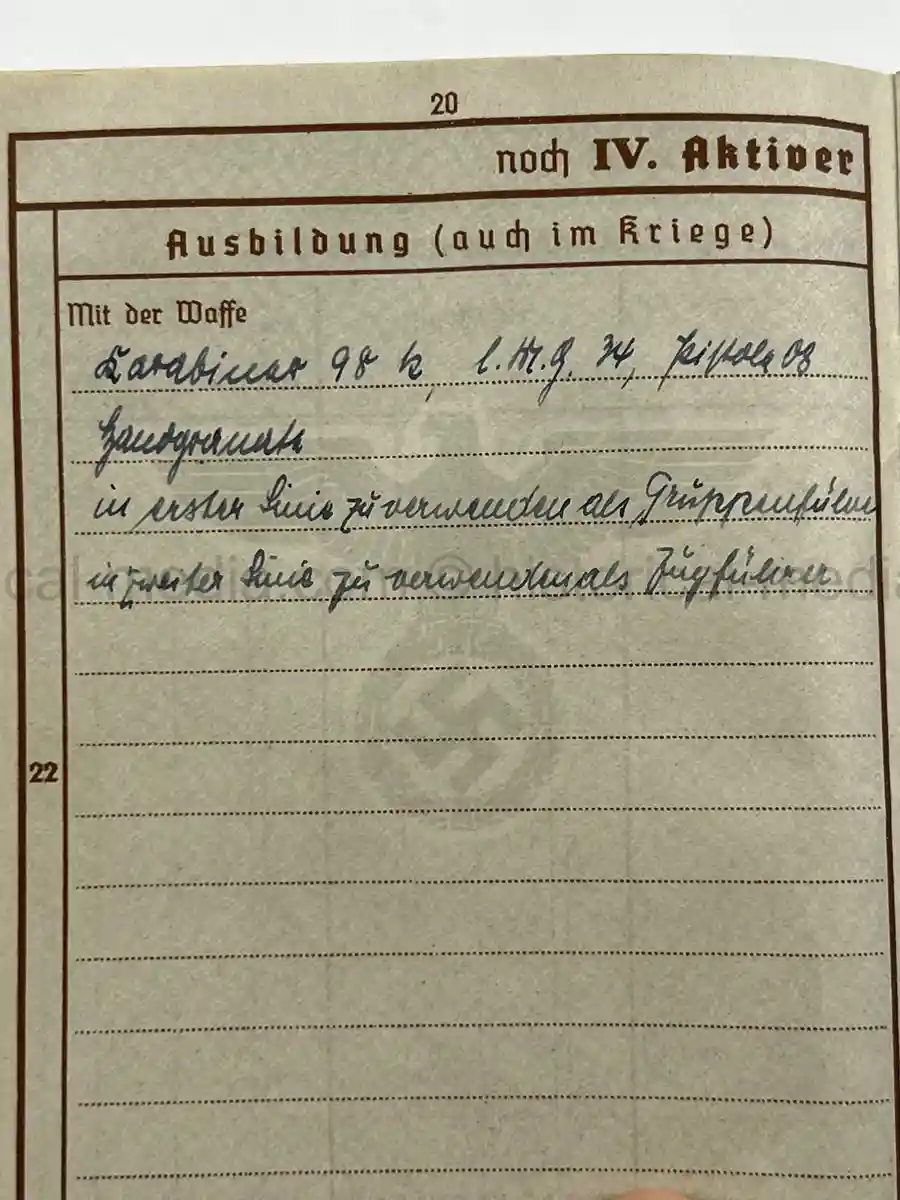 20
noch IV. Aktiver
Ausbildung (auch im Kriege)
Mit der Waffe
Karabiner 98 k, l. M. G. 34, Pistole 08
Handgranate
in erster Linie zu verwenden als Gruppenführe
in zweiter Linie zu verwenden als Zugführer
22